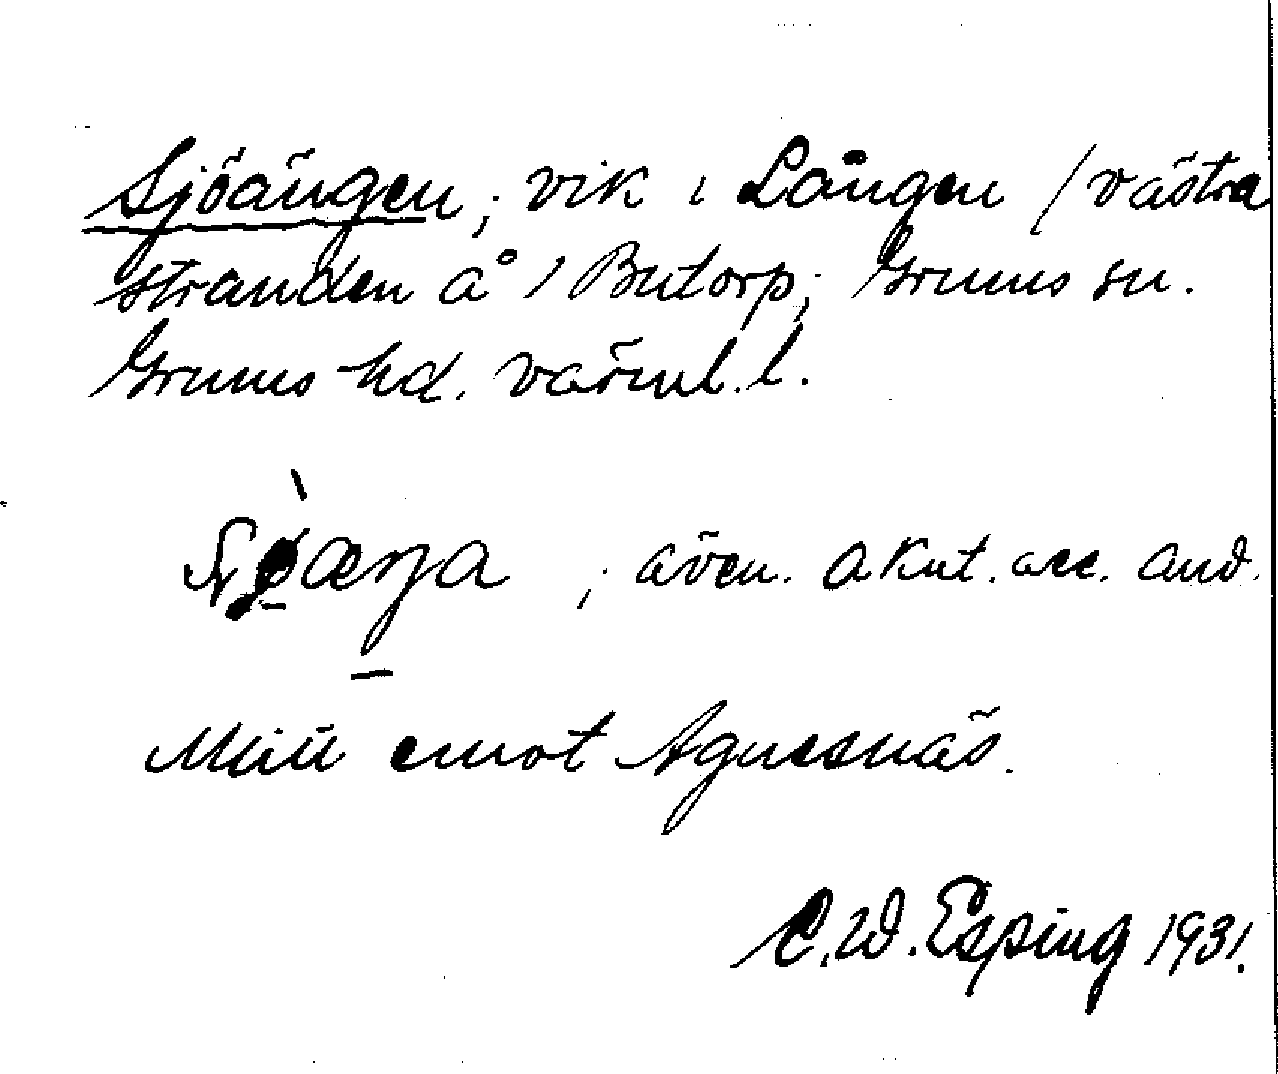 Sjöängen; vik i Lången (västra
stranden å) Butorp; Grums sn.
Grums hd. Värml. l.
även. akut. acc. anv.
Mitt emot Agnesnäs.
C.W. Esping 1931.